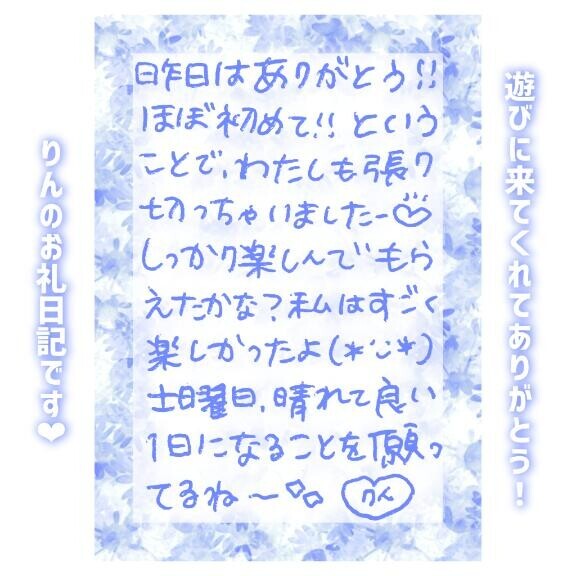 遊びに来てくれてありがとう!
昨日はありがとう!!
ほぼ初めて!!という
ことで、わたしも張り
切っちゃいましたー♡
しっかり楽しんでもら
えたかな?私はすごく
楽しかったよ(*'ᴗ'*)
土曜日、晴れて良い
1日になることを願っ
てるね〜
りん
りんのお礼日記です❤